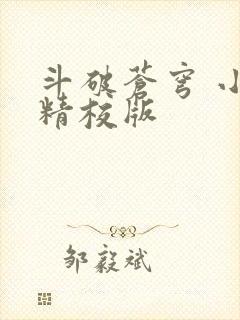 斗破苍穹 小
精校版
邹毅斌